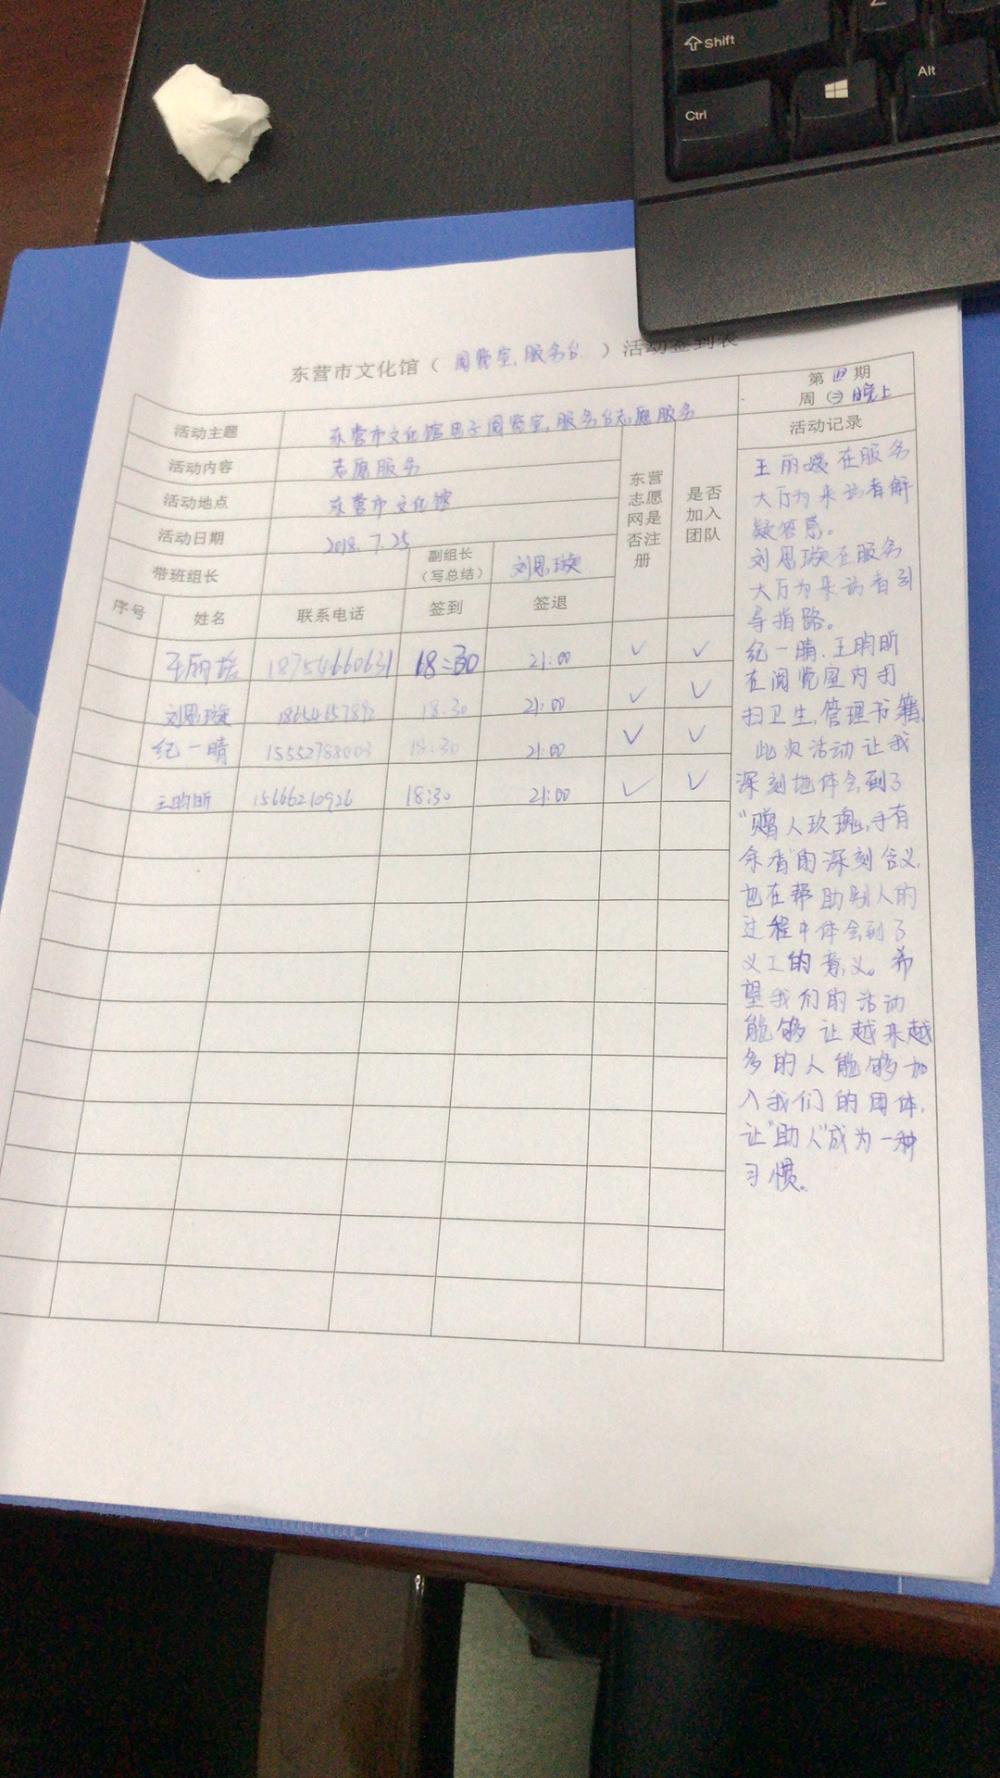 Shift
Z
Ctrl
Alt
东营市文化馆（阅览室、服务台）活动签到表
第四期
周㊂晚上
活动主题 东营市文化馆电子阅览室、服务台志愿服务
活动内容 志愿服务
活动地点 东营市文化馆
活动日期 2018.7.25
带班组长
副组长
（写总结）
刘思璇
东营
志愿
网是
否注
册
是否
加入
团队
活动记录
序号 姓名 联系电话 签到 签退
王丽媛 18754660631 18:30 21:00 ✓ ✓
刘思璇 18:30 21:00 ✓ ✓
纪一晴 15552788003 18:30 21:00 ✓ ✓
王昀昕 15666210926 18:30 21:00 ✓ ✓
王丽媛在服务
大厅为来访者解
疑答惑。
刘思璇在服务
大厅为来访者引
导指路。
纪一晴、王昀昕
在阅览室内打
扫卫生，管理书籍。
此次活动让我
深刻地体会到了
“赠人玫瑰，手有
余香”的深刻含义，
也在帮助别人的
过程中体会到了
义工的意义。希
望我们的活动
能够让越来越
多的人能够加
入我们的团体，
让“助人”成为一种
习惯。